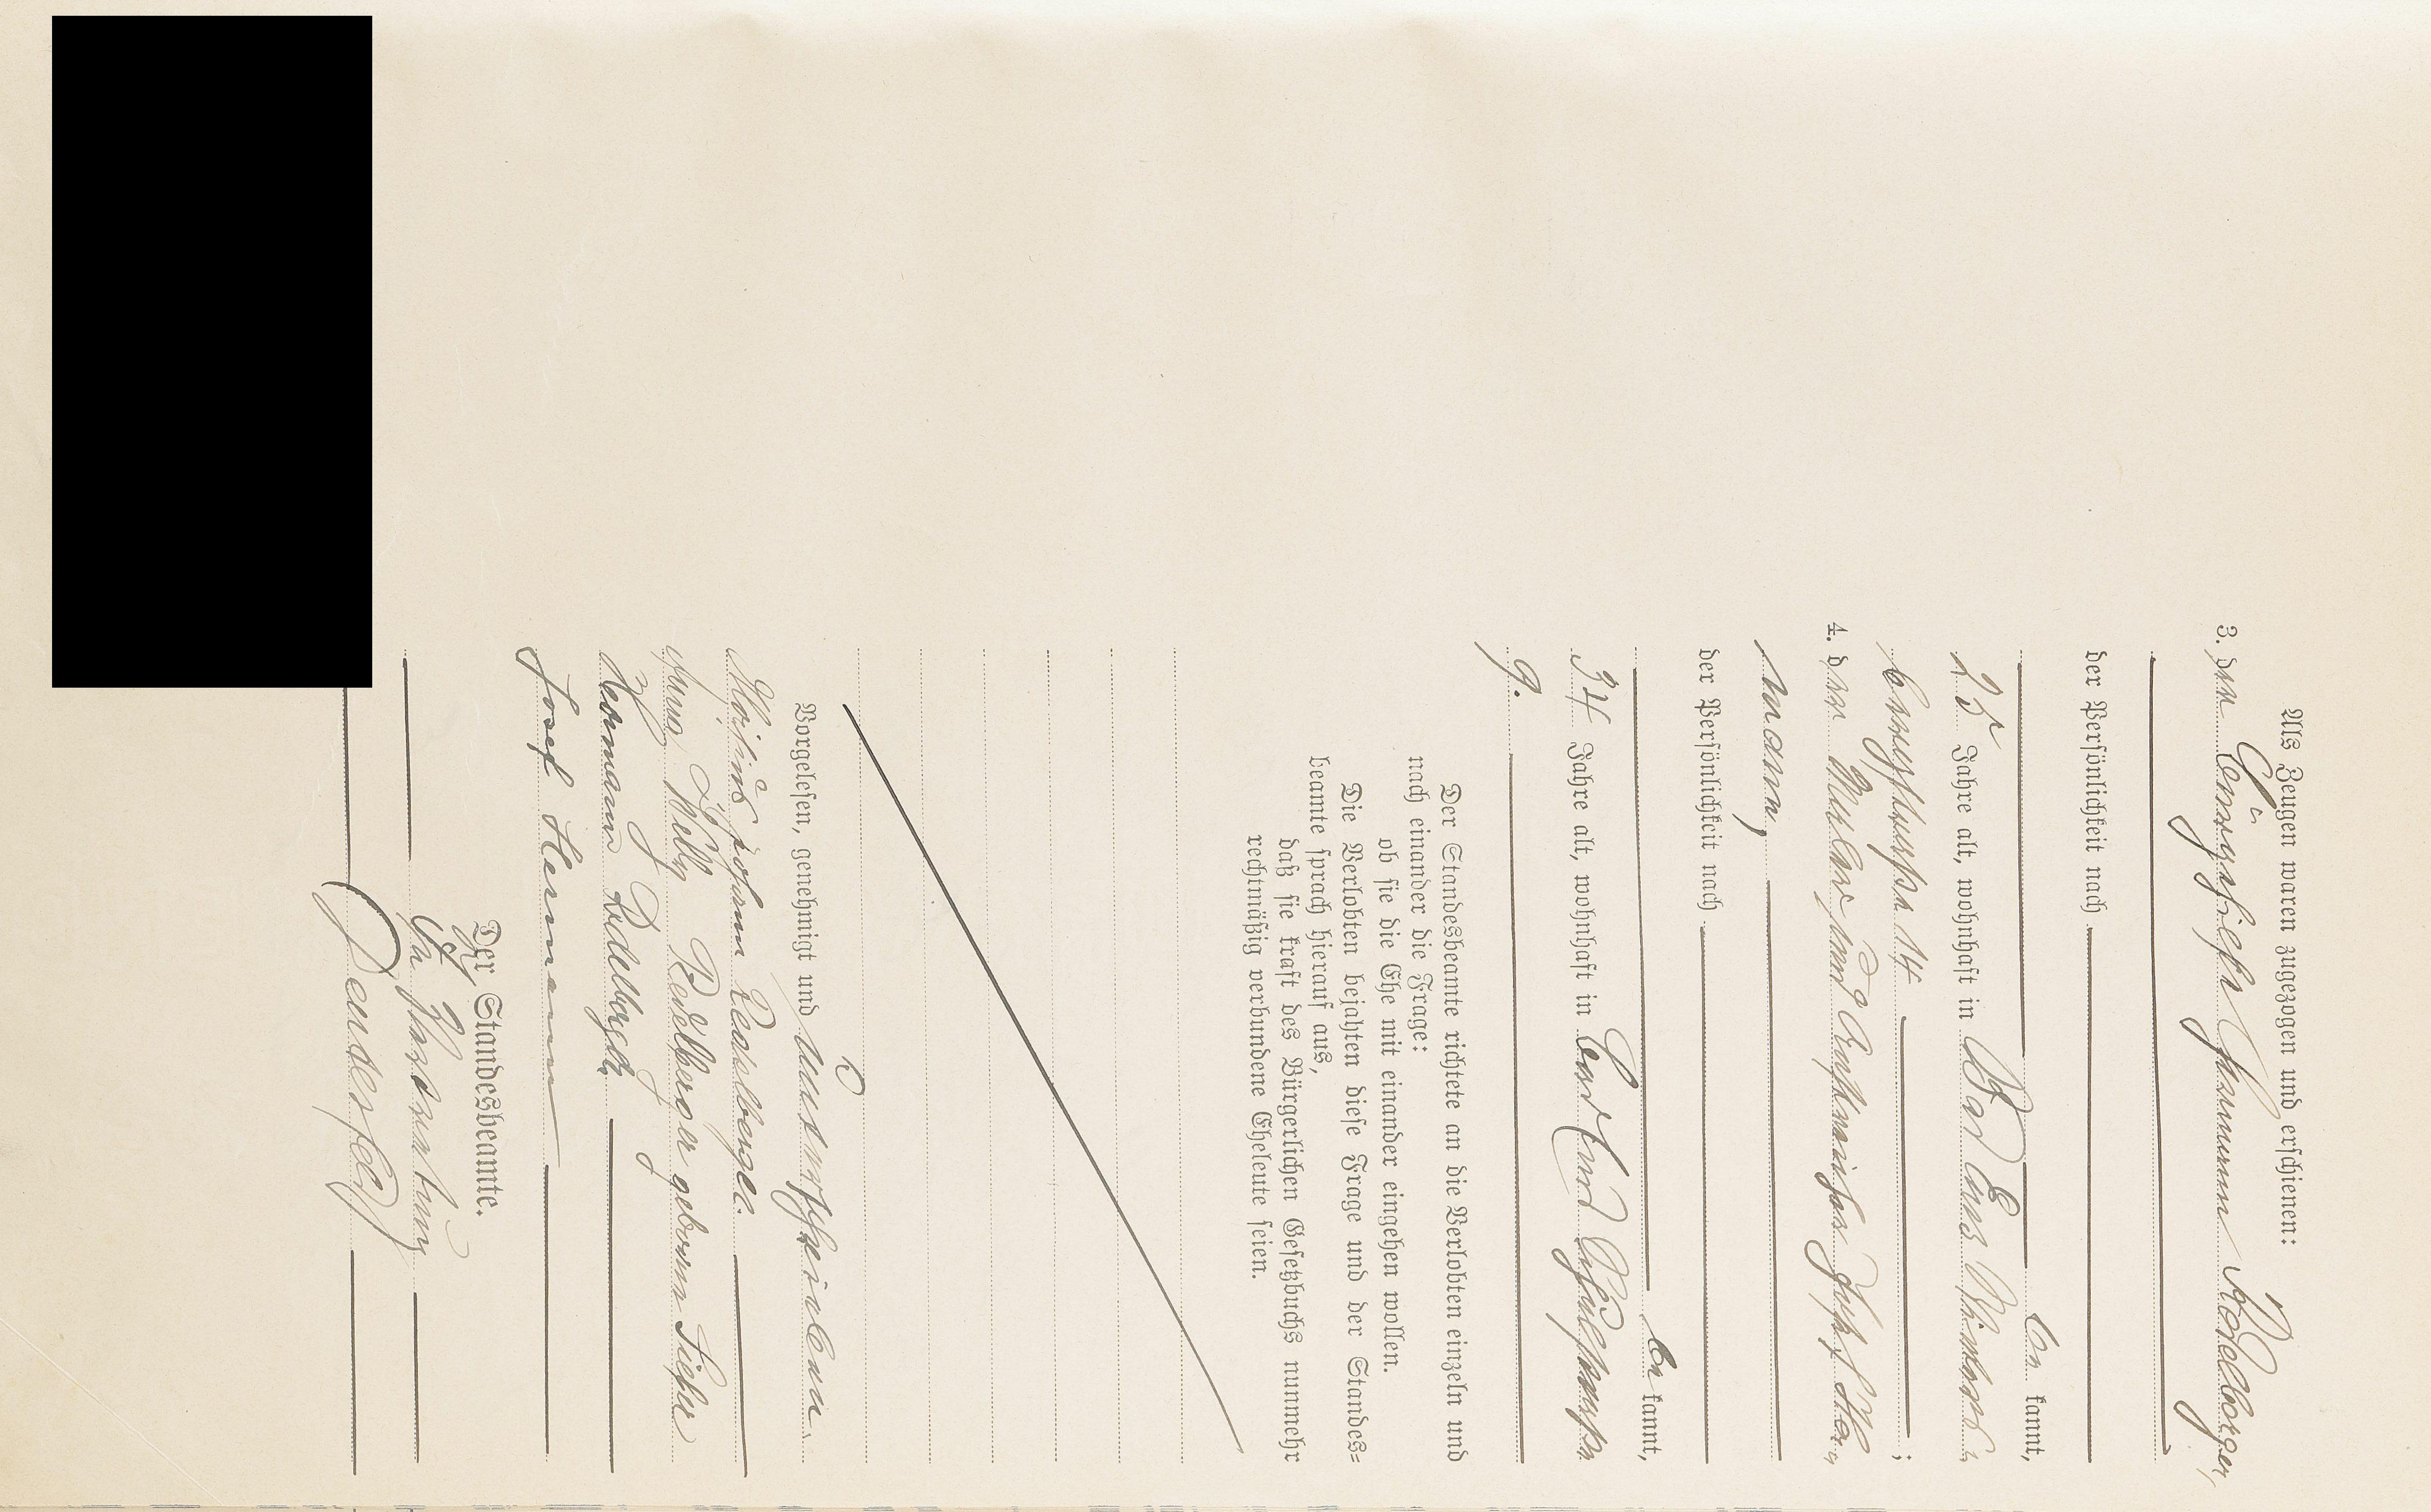 Als Zeugen waren zugezogen und erschienen:
3. der Hermann Redelberger,
der Persönlichkeit nach
be kannt,
25 Jahre alt, wohnhaft in Bad Ems
14 ;
4. der Maler und Anstreicher Josef Her⸗
mann,
der Persönlichkeit nach
be kannt,
34 Jahre alt, wohnhaft in Bad Ems
9.
Der Standesbeamte richtete an die Verlobten einzeln und
nach einander die Frage:
ob sie die Ehe mit einander eingehen wollen.
Die Verlobten bejahten diese Frage und der Standes⸗
beamte sprach hierauf aus,
daß sie kraft des Bürgerlichen Gesetzbuchs nunmehr
rechtmäßig verbundene Eheleute seien.
Vorgelesen, genehmigt und unterschrieben.
Redelberger.
Redelberger geborene
Hermann Redelberger
Josef Hermann
Der Standesbeamte.
In Vertretung